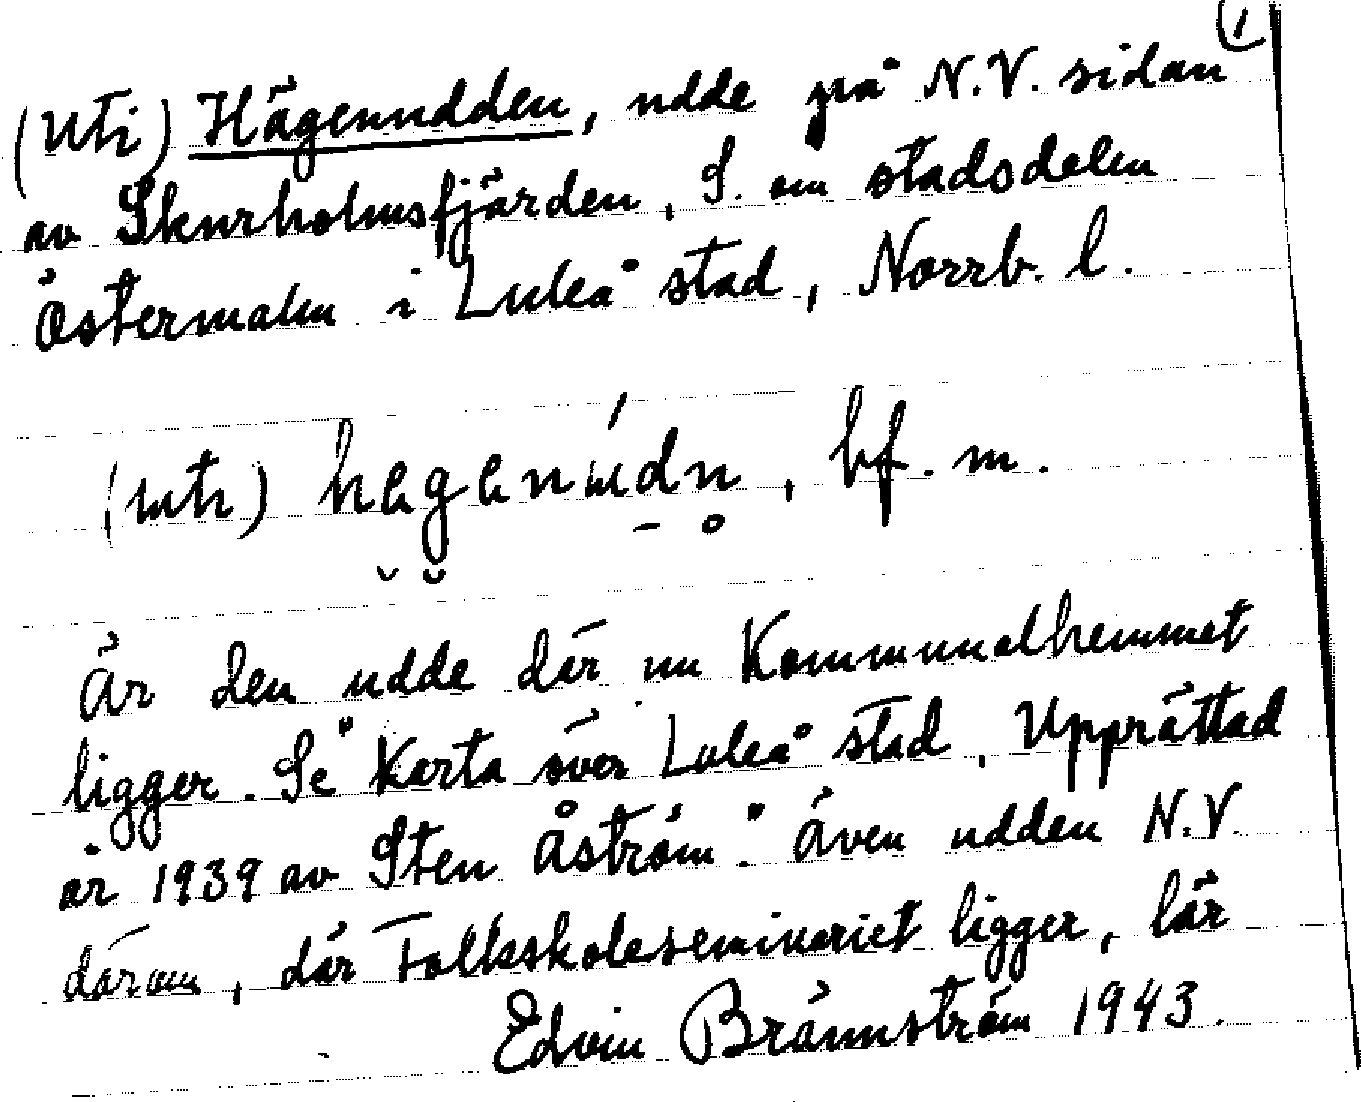 1
(Uti) Hägenudden, udde på N.V. sidan
av Skurholmsfjärden, S. om stadsdelen
Östermalm i Luleå stad, Norrb. l.
(uti) hegenúdn, bf. m.
Är den udde där nu Kommunalhemmet
ligger. Se "Karta över Luleå stad, Upprättad
år 1939 av Sten Åström". Även udden N.V.
därom, där Folkskoleseminariet ligger, lär
Edvin Brännström 1943.